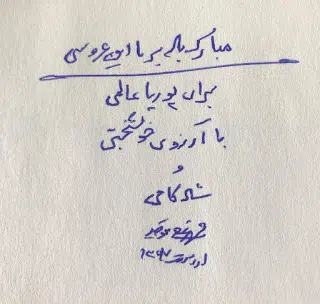 مبارک باد بر ما این عروسی
برای پوریا عالمی
با آرزوی خوشبختی
و
شادکامی
اردیبهشت ۱۳۹۲